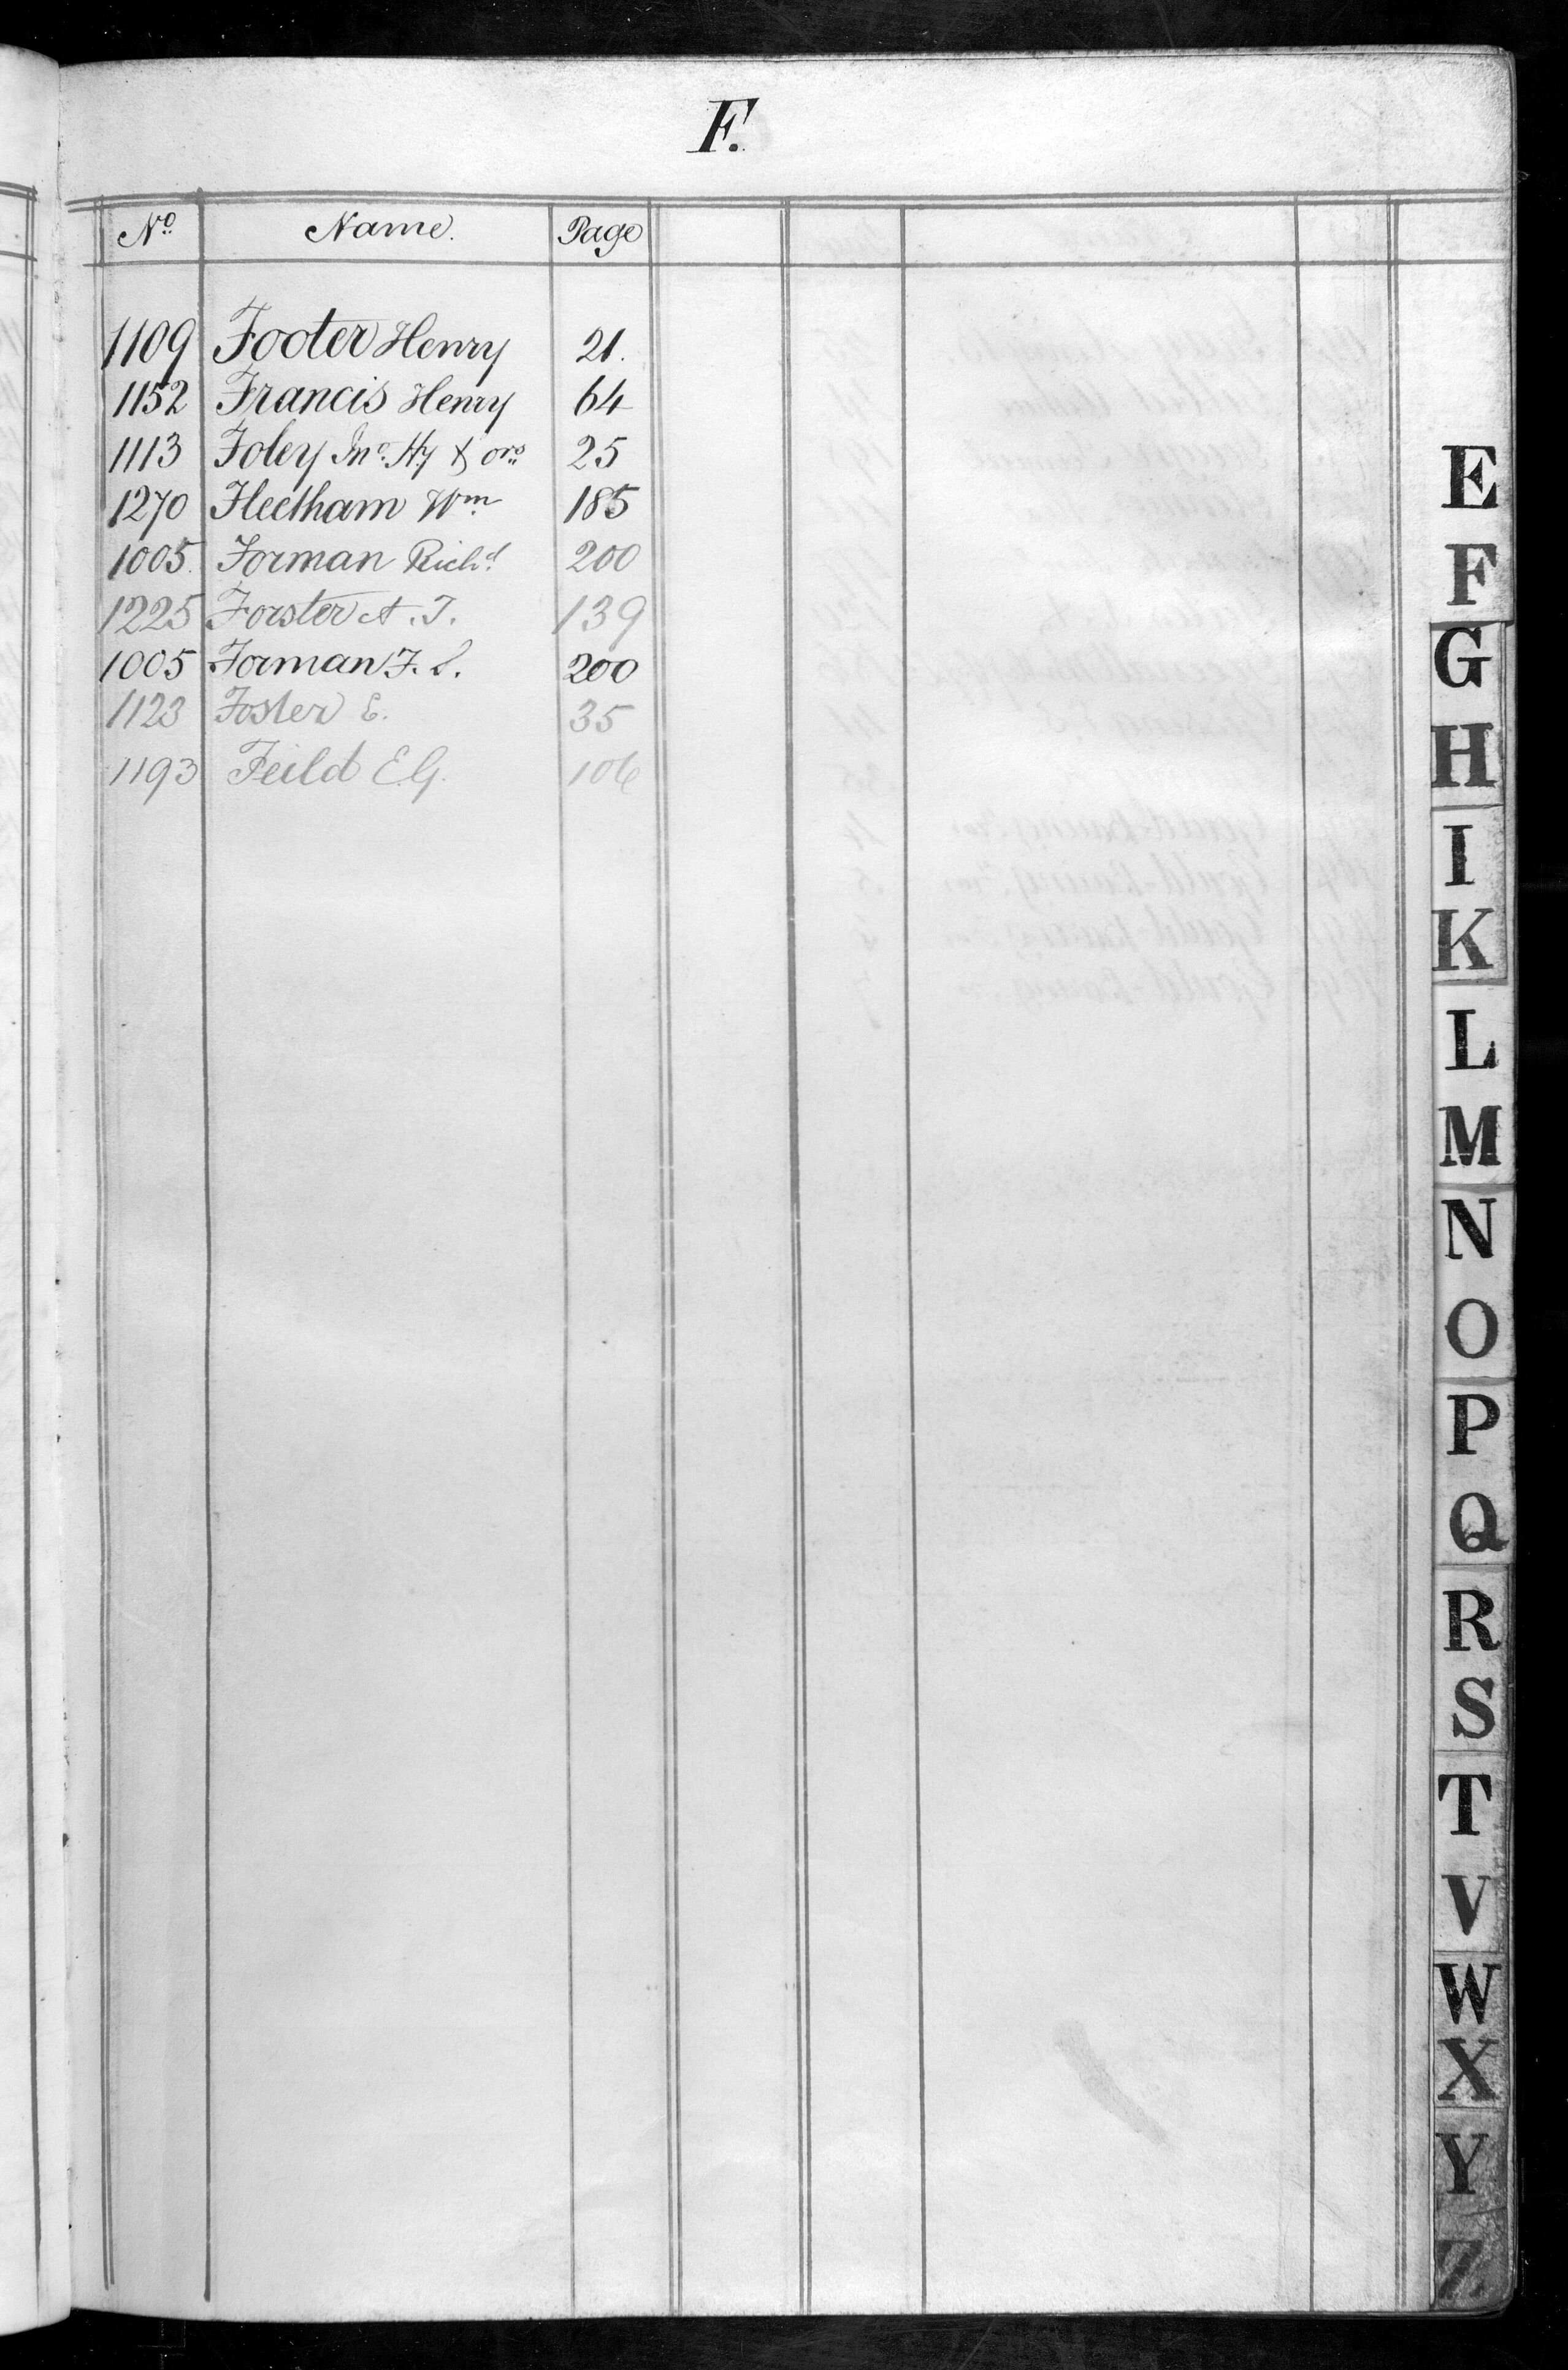 F.
No. Name. Page
1109 Footer Henry 21.
1152 Francis Henry 64
1113 Foley Jno. Hy & ors 25
1270 Fleetham Wm. 185
1005. Forman Richd. 200
1225 Forster A. J. 139
1005 Forman F. L. 200
1123 Foster E. 35
1193 Feild E.G. 106
E
F
G
H
I
K
L
M
N
O
P
Q
R
S
T
V
W
X
Y
Z